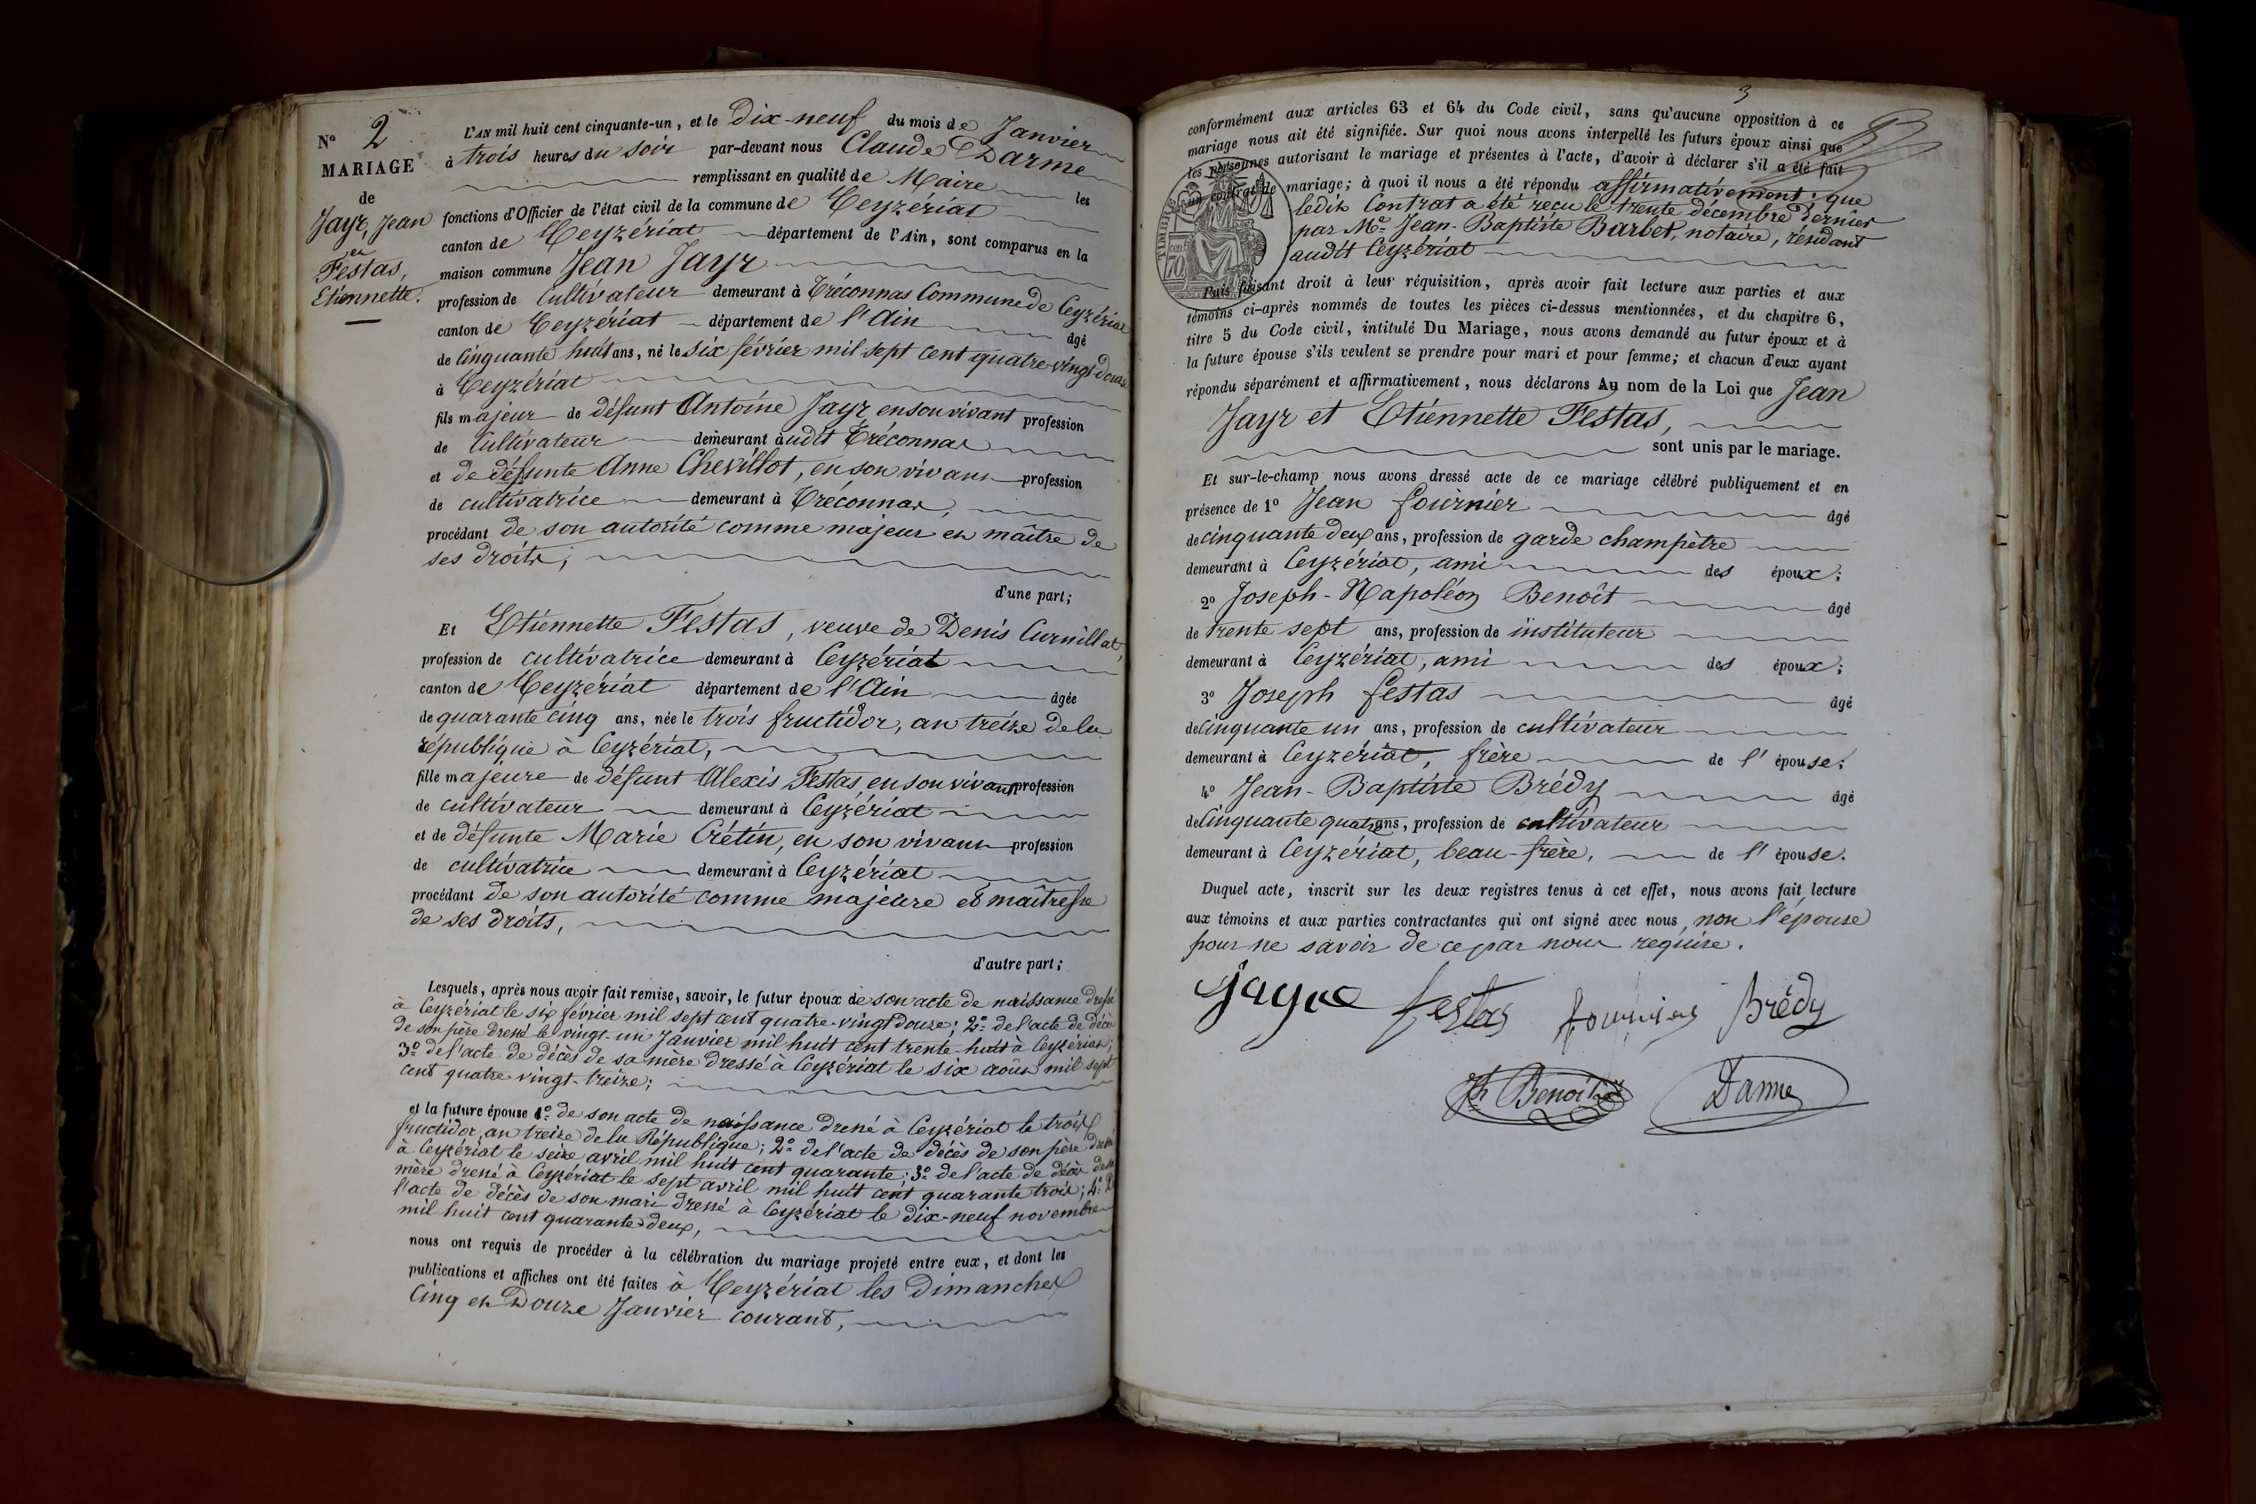 Nº 2
MARIAGE
de
Jayr, Jean
et
Festas,
Etiennette.
L'AN mil huit cent cinquante-un, et le Dix-neuf du mois de Janvier
à trois heures du soir par-devant nous Claude Darme
remplissant en qualité de Maire les
fonctions d'Officier de l'état civil de la commune de Ceyzériat
canton de Ceyzériat département de l'Ain, sont comparus en la
maison commune Jean Jayr
profession de cultivateur demeurant à Tréconnas Commune de Ceyzériat
canton de Ceyzériat département de l'Ain âgé
de cinquante huit ans, né le six février mil sept cent quatre-vingt-douze
à Ceyzériat
fils majeur de défunt Antoine Jayr en son vivant profession
de cultivateur demeurant audit Tréconnas
et de défunte Anne Chevillot, en son vivant profession
de cultivatrice demeurant à Tréconnas,
procédant de son autorité comme majeur et maître de
ses droits;
d'une part;
Et Etiennette Festas, veuve de Denis Curnillat,
profession de cultivatrice demeurant à Ceyzériat
canton de Ceyzériat département de l'Ain âgée
de quarante cinq ans, née le trois fructidor, an treize de la
république à Ceyzériat,
fille majeure de défunt Alexis Festas, en son vivant profession
de cultivateur demeurant à Ceyzériat
et de défunte Marie Crétin, en son vivant profession
de cultivatrice demeurant à Ceyzériat
procédant de son autorité comme majeure et maîtresse
de ses droits,
d'autre part;
Lesquels, après nous avoir fait remise, savoir, le futur époux de son acte de naissance dressé
à Ceyzériat le six février mil sept cent quatre-vingt douze; 2º de l'acte de décès
de son père dressé le vingt-un Janvier mil huit cent trente-huit à Ceyzériat;
3º de l'acte de décès de sa mère dressé à Ceyzériat le six août mil sept
cent quatre-vingt-treize;
et la future épouse 1º de son acte de naissance dressé à Ceyzériat le trois
fructidor, an treize de la République; 2º de l'acte de décès de son père dressé
à Ceyzériat le seize avril mil huit cent quarante; 3º de l'acte de décès de sa
mère dressé à Ceyzériat le sept avril mil huit cent quarante trois; 4º De
l'acte de décès de son mari dressé à Ceyzériat le dix-neuf novembre
mil huit cent quarante-deux,
nous ont requis de procéder à la célébration du mariage projeté entre eux, et dont les
publications et affiches ont été faites à Ceyzériat les Dimanches
Cinq et Douze Janvier courant,
3
conformément aux articles 63 et 64 du Code civil, sans qu'aucune opposition à ce
mariage nous ait été signifiée. Sur quoi nous avons interpellé les futurs époux ainsi que
les personnes autorisant le mariage et présentes à l'acte, d'avoir à déclarer s'il a été fait
un contrat de mariage; à quoi il nous a été répondu affirmativement: que
ledit Contrat a été reçu le trente décembre dernier
par Me Jean-Baptiste Barbet, notaire, résidant
audit Ceyzériat
TIMBRE
70
Puis faisant droit à leur réquisition, après avoir fait lecture aux parties et aux
témoins ci-après nommés de toutes les pièces ci-dessus mentionnées, et du chapitre 6,
titre 5 du Code civil, intitulé Du Mariage, nous avons demandé au futur époux et à
la future épouse s'ils veulent se prendre pour mari et pour femme; et chacun d'eux ayant
répondu séparément et affirmativement, nous déclarons Au nom de la Loi que Jean
Jayr et Etiennette Festas,
sont unis par le mariage.
Et sur-le-champ nous avons dressé acte de ce mariage célébré publiquement et en
présence de 1º Jean Fournier âgé
de cinquante deux ans, profession de garde champêtre
demeurant à Ceyzériat, ami des époux;
2º Joseph-Napoléon Benoît âgé
de trente sept ans, profession de instituteur
demeurant à Ceyzériat, ami des époux;
3º Joseph Festas âgé
de cinquante un ans, profession de cultivateur
demeurant à Ceyzériat, frère de l'épouse;
4º Jean-Baptiste Brédy âgé
de cinquante quatre ans, profession de cultivateur
demeurant à Ceyzériat, beau-frère, de l'épouse.
Duquel acte, inscrit sur les deux registres tenus à cet effet, nous avons fait lecture
aux témoins et aux parties contractantes qui ont signé avec nous, non l'épouse
pour ne savoir de ce par nous requise.
Jayr festas fournier Brédy
Jh Benoit Darme